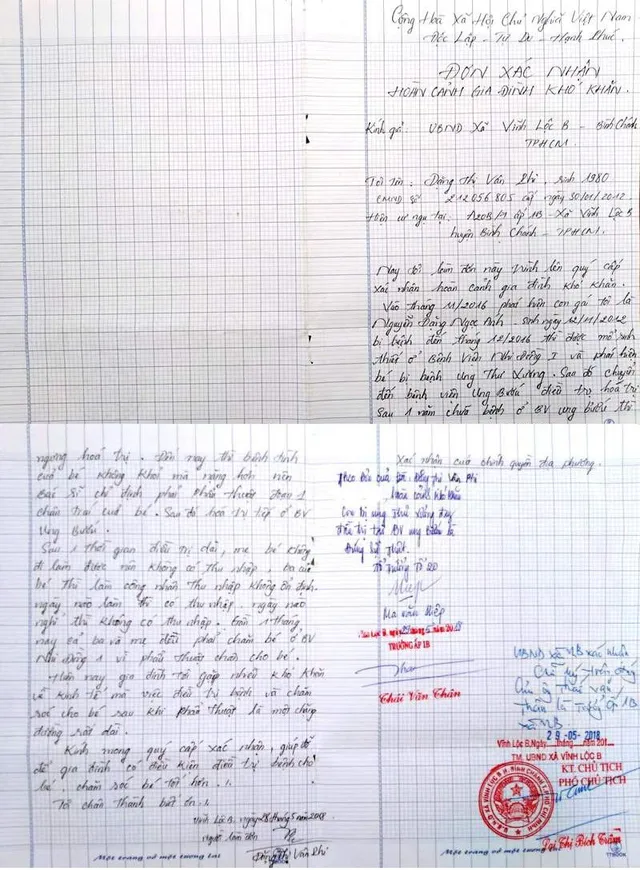 Cộng Hoà Xã Hội Chủ Nghĩa Việt Nam
Độc Lập - Tự Do - Hạnh Phúc
ĐƠN XÁC NHẬN
HOÀN CẢNH GIA ĐÌNH KHÓ KHĂN.
Kính gửi: UBND Xã Vĩnh Lộc B - Bình Chánh
TPHCM.
Tôi tên: Đặng Thị Vân Phi sinh 1980
CMND số 212056805 cấp ngày 30/01/2012
Hiện cư ngụ tại: ấp 1B - Xã Vĩnh Lộc B
huyện Bình Chánh - TPHCM.
Nay tôi làm đơn này trình lên quý cấp
xác nhận hoàn cảnh gia đình khó khăn.
Vào tháng 11/2016 phát hiện con gái tôi là
Nguyễn Đặng Ngọc Ánh - sinh ngày 12/11/2012
bị bệnh đến tháng 12/2016 thì được mổ sinh
thiết ở Bệnh Viện Nhi đồng I và phát hiện
bé bị bệnh Ung Thư Xương. Sau đó chuyển
đến bệnh viện Ung Bướu điều trị hoá trị
Sau 1 năm chữa bệnh ở BV ung bướu thì
ngưng hoá trị. Đến nay thì bệnh tình
của bé không khỏi mà nặng hơn nên
Bác sĩ chỉ định phải phẫu thuật đoạn 1
chân trái của bé. Sau đó hoá trị tiếp ở BV
Ung Bướu.
Sau 1 thời gian điều trị dài, mẹ bé không
đi làm được nên không có thu nhập, ba của
bé thì làm công nhân thu nhập không ổn định.
ngày nào làm thì có thu nhập. ngày nào
nghỉ thì không có thu nhập. Gần 1 tháng
nay cả ba và mẹ đều phải chăm bé ở BV
Nhi Đồng 1 vì phẫu thuật chân cho bé.
Hiện nay gia đình tôi gặp nhiều khó khăn
về kinh tế mà việc điều trị bệnh và chăm
sóc cho bé sau khi phẫu thuật là một chặng
đường rất dài.
Kính mong quý cấp xác nhận, giúp đỡ
để gia đình có điều kiện điều trị bệnh cho
bé. chăm sóc bé tốt hơn.
Tôi chân thành biết ơn.
Vĩnh Lộc B, ngày 28 tháng 5 năm 2018
Người làm đơn
Đặng Thị Vân Phi
Một trang vở một tương lai
Xác nhận của chính quyền địa phương.
Theo Đơn của Bà: Đặng Thị Vân Phi
hoàn cảnh khó khăn
Con bị ung thư xương đang
điều trị tại BV ung bướu là
đúng sự thật.
Tổ Trưởng Tổ 20
Ma Văn Hiệp
Vĩnh Lộc B, ngày 29 tháng 5 năm 2018
TRƯỞNG ẤP 1B
Thái Văn Thân
UBND xã VLB xác nhận
Chữ ký trên đây
Của ông Thái Văn
Thân là Trưởng ấp 1B
xã VLB
29-05-2018
Vĩnh Lộc B, Ngày tháng năm 201
TM. UBND XÃ VĨNH LỘC B
KT. CHỦ TỊCH
PHÓ CHỦ TỊCH
Lại Thị Bích Trâm
Một trang vở một tương lai